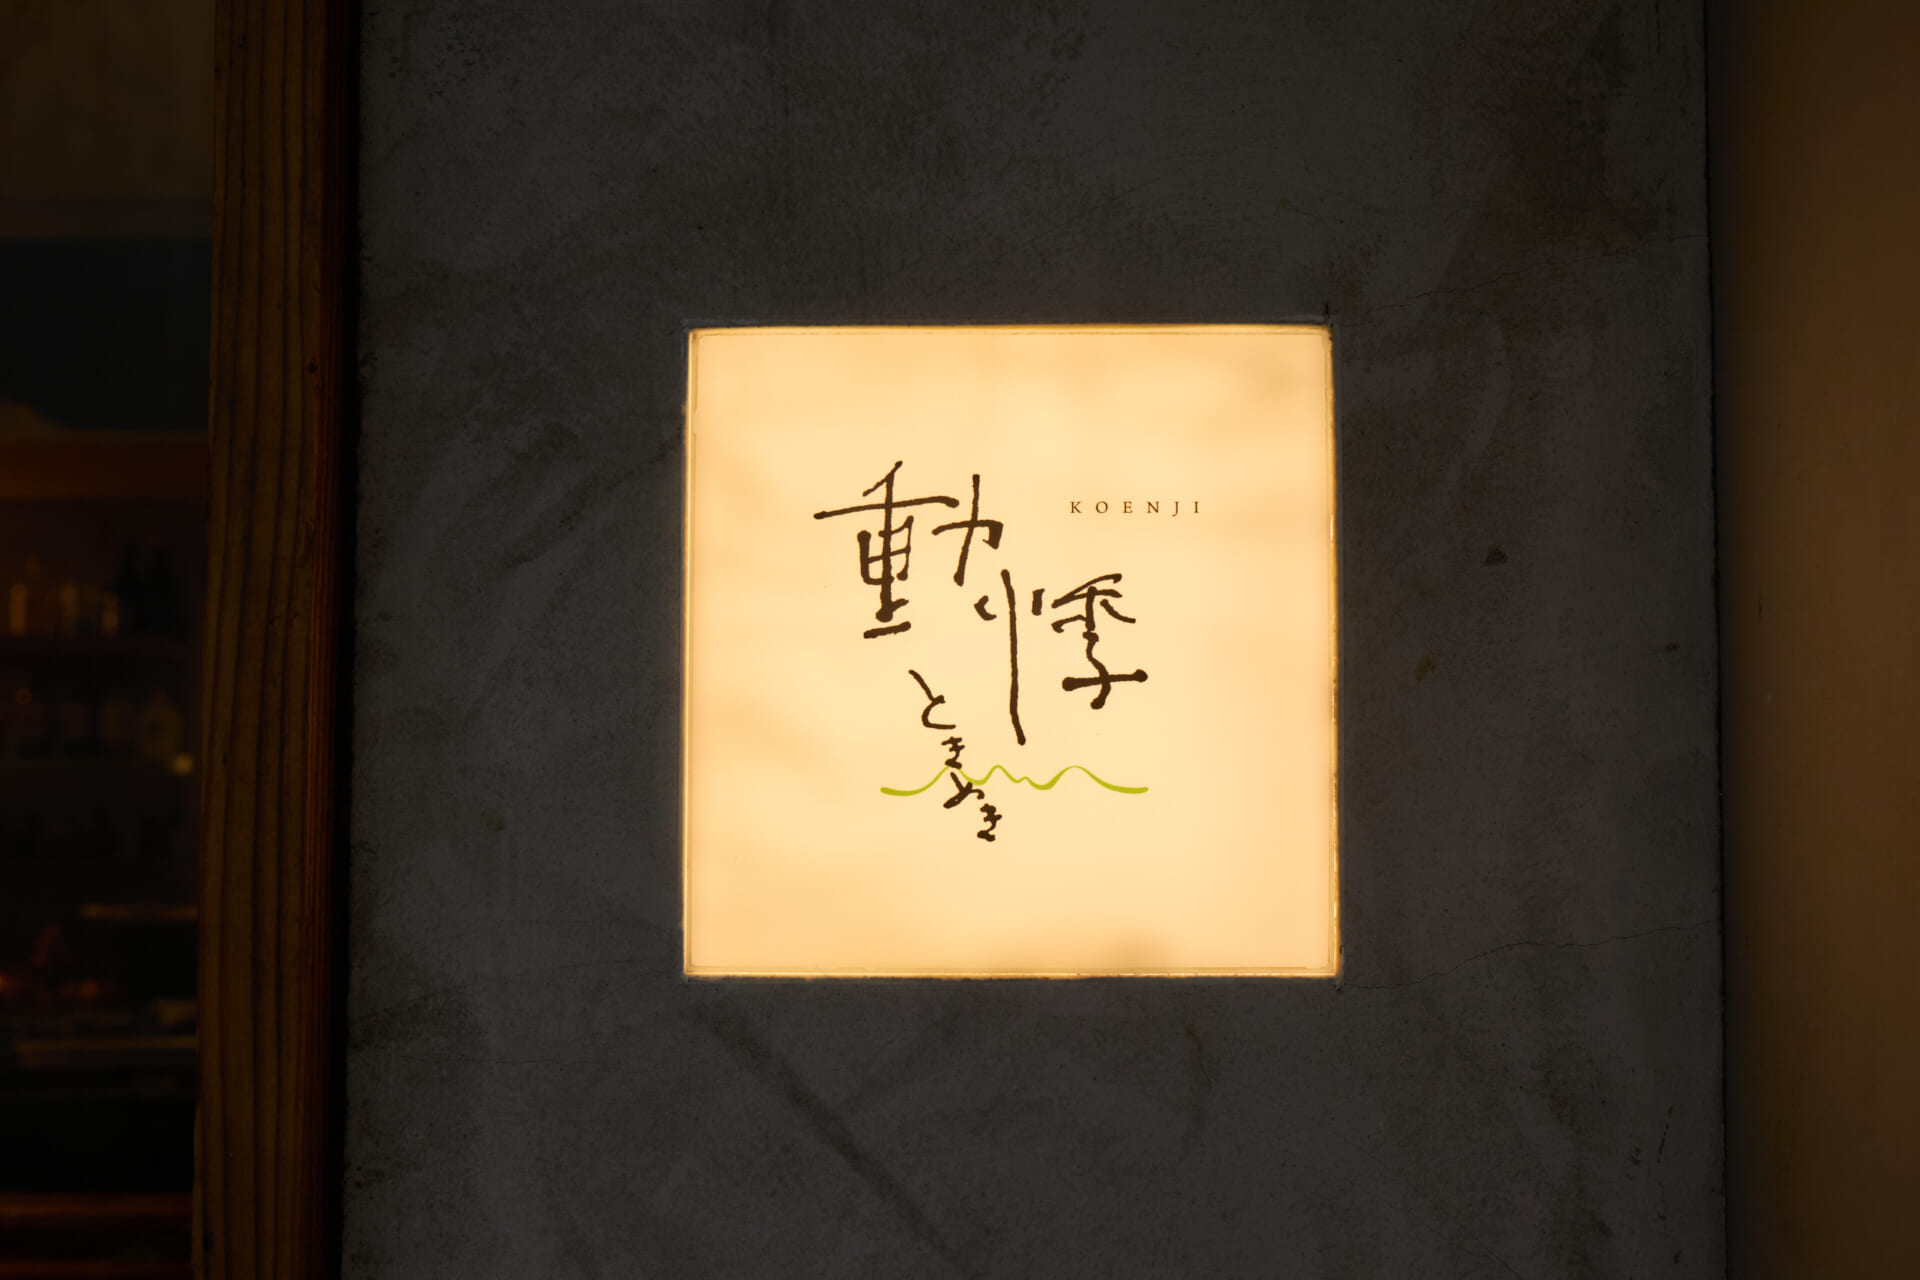 動悸
KOENJI
ときめき